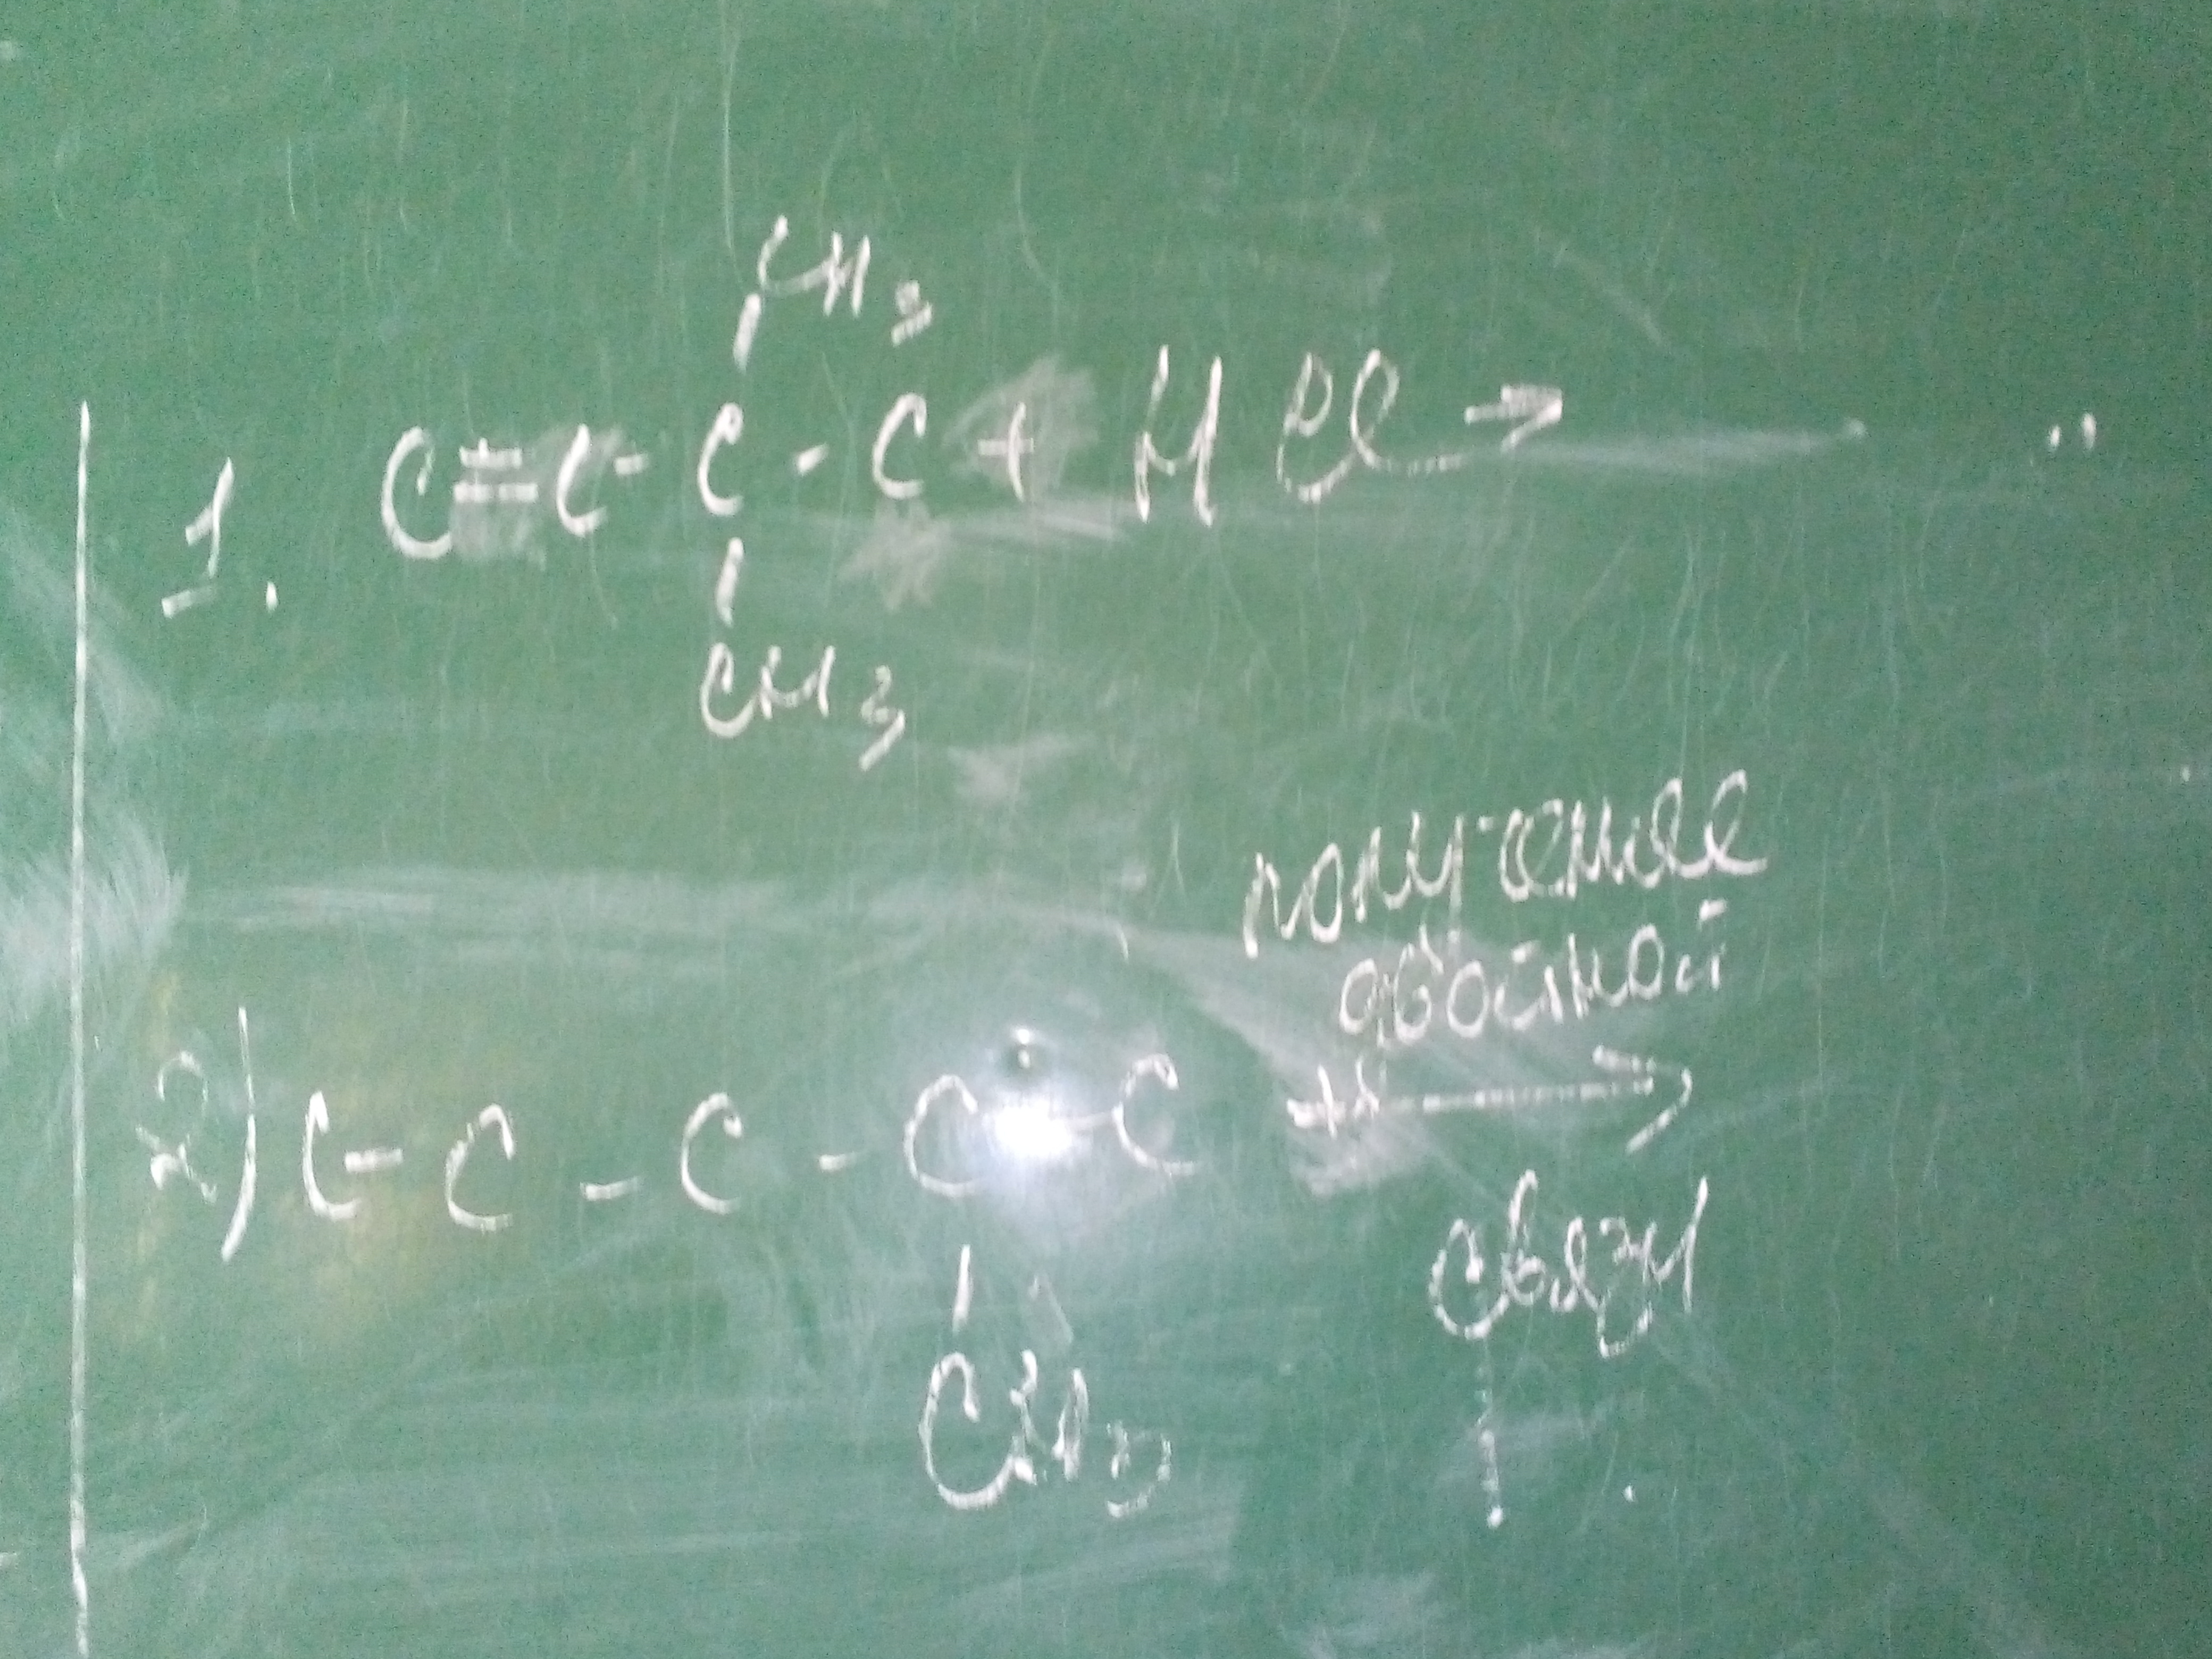 CH3
1. C=C-C-C + HCl →
CH3
получение
двойной
2) C-C-C-C-C →
связи
CH3